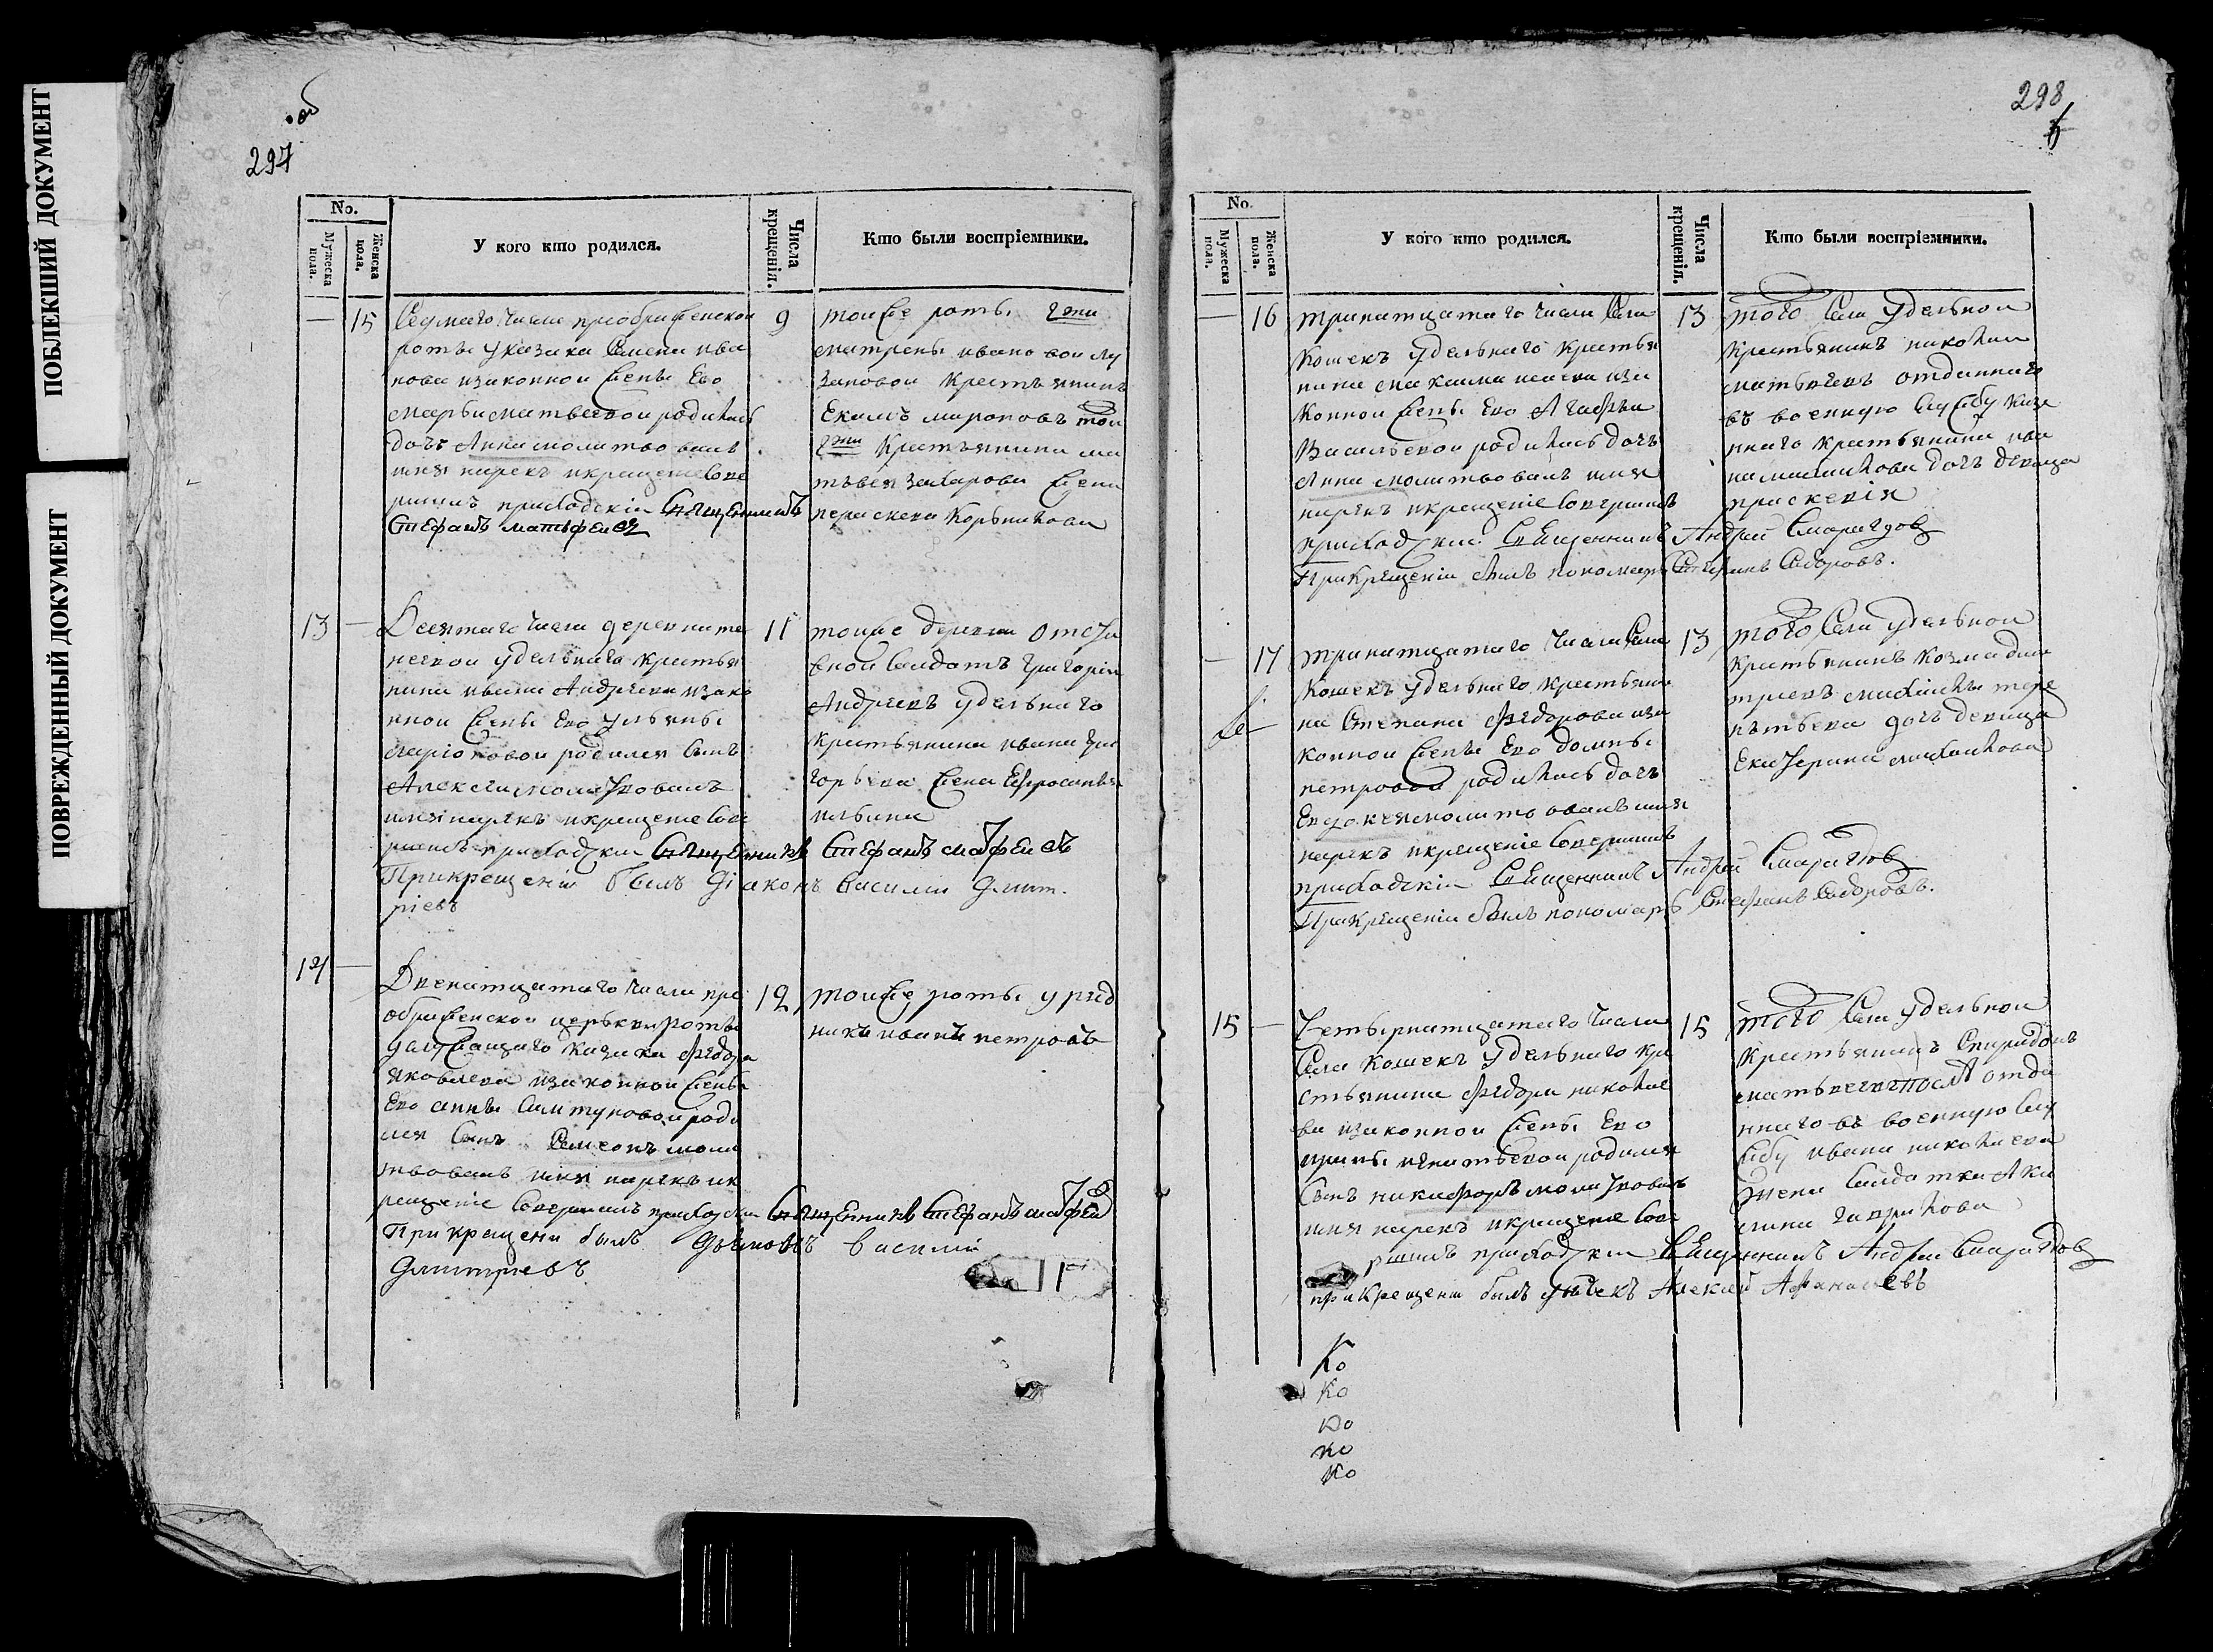 ПОБЛЕКШИЙ ДОКУМЕНТ
ПОВРЕЖДЕННЫЙ ДОКУМЕНТ
об
297
No.
Мужеска пола.
Женска пола.
У кого кто родился.
Числа крещенія.
Кто были воспріемники.
15
Седмаго числа преображенской
роты указака Семена ива
нова изаконной жены Его
марьи матвеевой родилась
дочь Анна молитвовалъ
имя нарекъ икрещение Сове
ршилъ приходскіи Священникъ
Стефанъ матфеевъ
9
тойже роты гжи
матрены ивановой
крестьянинъ
Екимъ мироновъ той
гжи Крестьянина ма
твея Захарова жена
13
Десятаго числа деревни
удельнаго крестья
нина ивана Андреева изако
нной жены Его ульяны
родился сынъ
Алексеи молитвовалъ
имя нарекъ икрещение Сове
ршилъ приходскіи Священникъ Стефанъ матфеевъ
При крещеніи былъ діаконъ василии дмит
ріевъ
11
тойже деревни
Солдатъ григореи
Андреевъ удельнаго
крестьянина ивана гри
горьева жена Ефросинья
ильина
14
Двенатцатаго числа пре
ображенской церькви роты
казака федора
яковлева изаконной жены
Его анны родил
ся Сынъ Симеонъ моли
твовалъ имя нарекъ ик
рещение Совершилъ приходскіи Священникъ Стефанъ матфеев
При крещении былъ дьяконъ василии
Дмитриевъ
12
тойже роты уряд
никъ иванъ петровъ
298
No.
Мужеска пола.
Женска пола.
У кого кто родился.
Числа крещенія.
Кто были воспріемники.
16
тринатцатаго числа Села
Кошекъ удельнаго крестья
нина максима иза
конной жены Его Агафьи
Васильевой родилась дочь
Анна молитвовалъ имя
нарекъ икрещеніе Совершилъ
приходскіи Священникъ Андрей Смарагдовъ
При крещеніи былъ пономарь Стефанъ Сидоровъ.
13
того Села удельной
Крестьянинъ николаи
матвеевъ отданнаго
въ военную службу казе
ннаго крестьянина ива
на дочь девица
праскевія
17
тринатцатаго числа Села
Кошекъ удельнаго крестьяни
на Степана Федорова иза
конной жены Его домны
петровой родилась дочь
Евдокея молитвовалъ имя
нарекъ икрещеніе Совершилъ
приходскіи Священникъ Андрей Смарагдовъ
При крещеніи былъ пономарь Стефанъ Сидоровъ.
13
того Села удельной
крестьянинъ козма дми
триевъ михаилы тере
нтьева дочь девица
Екатерина михаилова
15
Четырнатцатаго числа
Села Кошекъ удельнаго кре
стьянина федора никола
ева изаконной жены Его
ирины игнатьевой родился
Сынъ никифоръ молитвовалъ
имя нарекъ икрещение Сове
ршилъ приходскіи Священникъ Андреи Смарагдовъ
при крещении былъ Алексей Афанасьевъ
15
того Села удельной
крестьянинъ Спиридонъ
отда
ннаго въ военную слу
жбу ивана николаева
жена Солдатка Аку
лина гаврилова
Ко
Ко
Ко
Ко
Ко